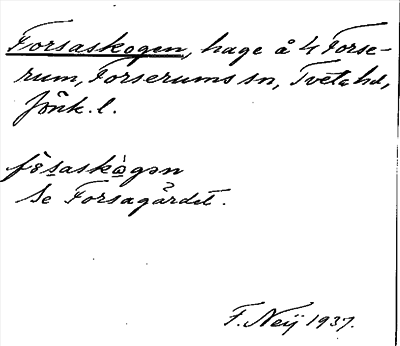 Forsaskogen, hage å 4 Forse-
rum, Forserums sn, Tveta hd,
Jönk. l.
fòs̱askò̱gən
Se Forsagärdet.
F. Neij 1937.